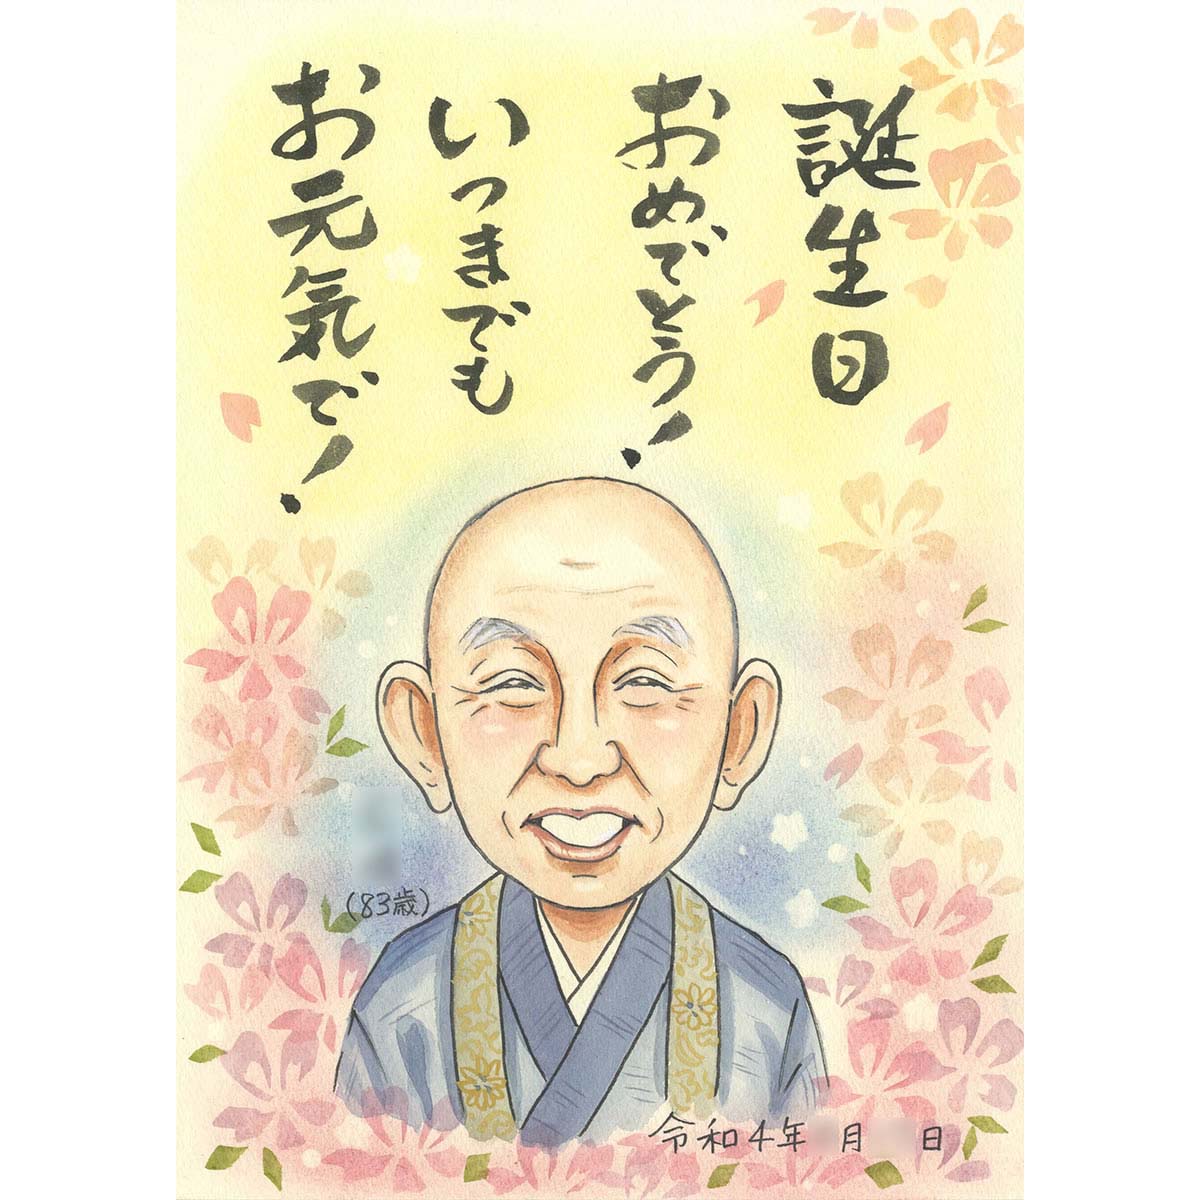 誕生日
おめでとう!
いつまでも
お元気で!
(83歳)
令和4年 月 日